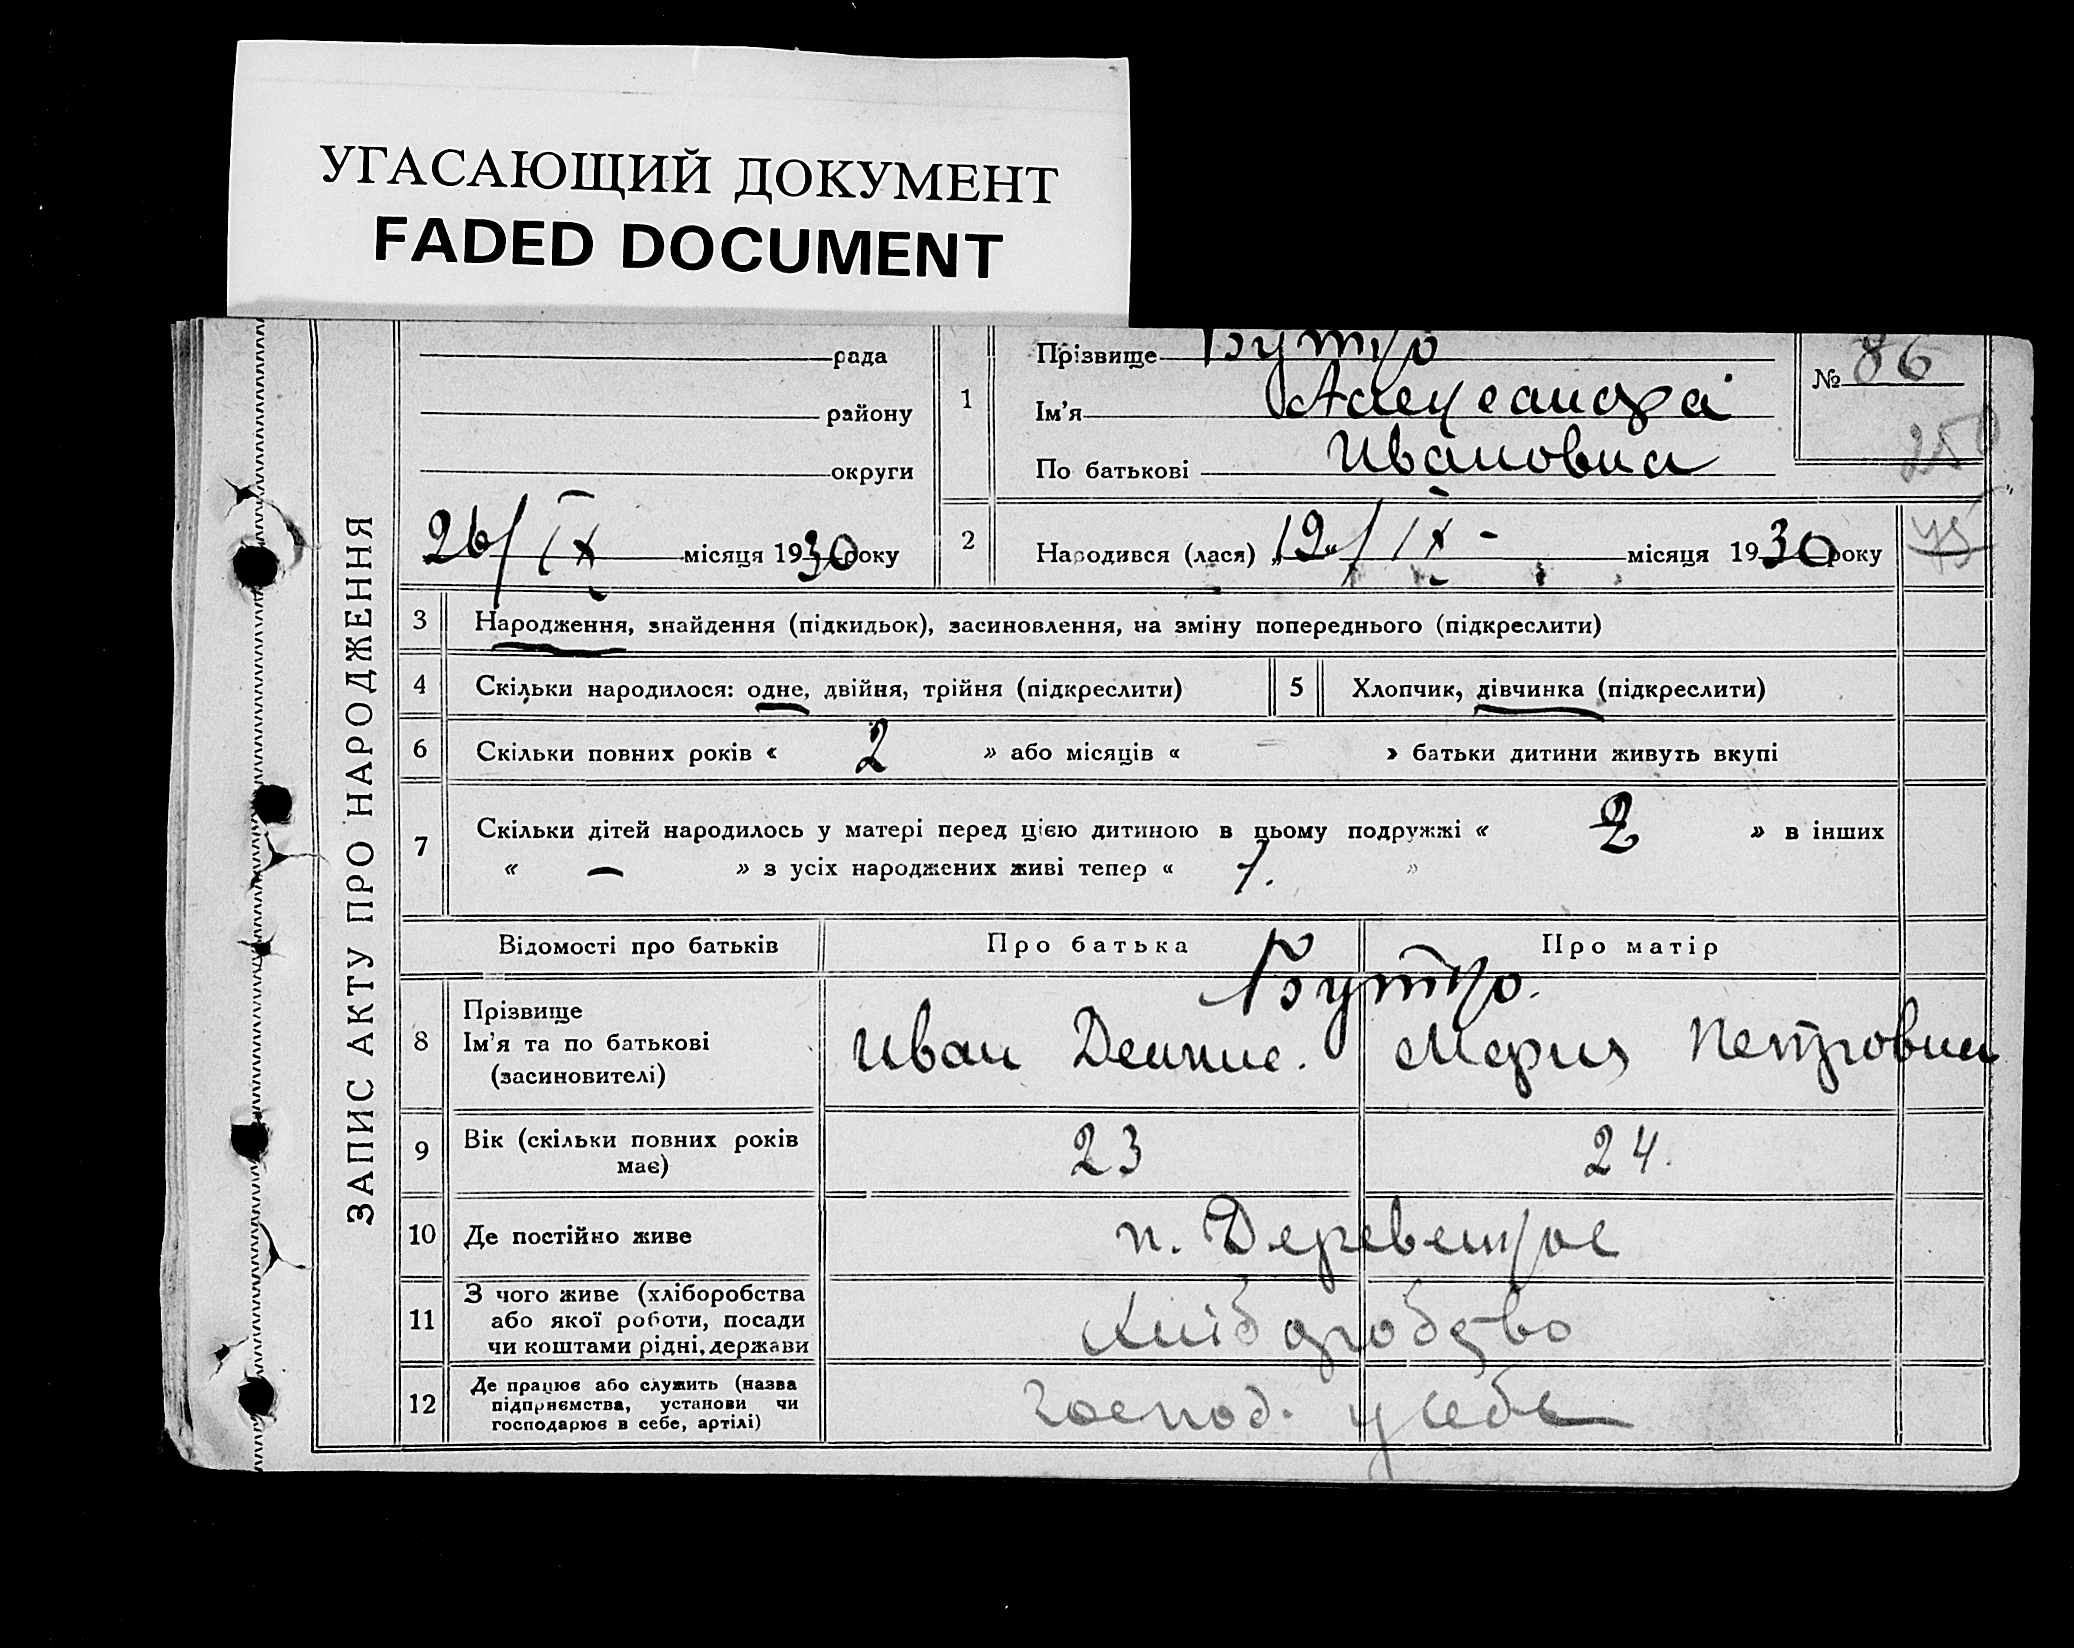 УГАСАЮЩИЙ ДОКУМЕНТ
FADED DOCUMENT
ЗАПИС АКТУ ПРО НАРОДЖЕННЯ
рада
району
округи
26/IX місяця 1930 року
1
Прізвище Бутко
Ім'я Александра
По батькові Ивановна
№ 86
250
45
2
Народився (лася) „12“/IX - місяця 1930 року
3 Народження, знайдення (підкидьок), засиновлення, на зміну попереднього (підкреслити)
4 Скільки народилося: одне, двійня, трійня (підкреслити) 5 Хлопчик, дівчинка (підкреслити)
6 Скільки повних років « 2 » або місяців « – » батьки дитини живуть вкупі
7 Скільки дітей народилось у матері перед цією дитиною в цьому подружжі « 2 » в інших
« – » з усіх народжених живі тепер « 1. »
Відомості про батьків Про батька Про матір
8 Прізвище
Ім'я та по батькові
(засиновителі)
Бутко.
Иван Денис. Мария Петровна
9 Вік (скільки повних років
має)
23 24.
10 Де постійно живе
11 З чого живе (хліборобства
або якої роботи, посади
чи коштами рідні, держави
Хліборобство
12 Де працює або служить (назва
підприємства, установи чи
господарює в себе, артілі)
Господ. у себе